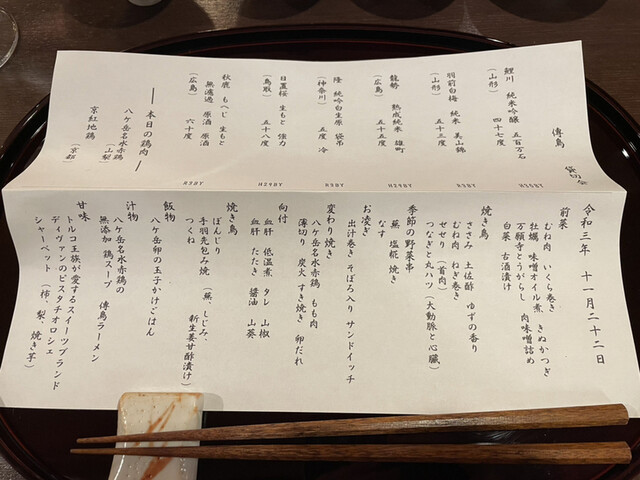 貸切会
傳鳥
鯉川 純米吟醸 五百万石
(山形) 四十七度
羽前白梅 純米 美山錦
(山形) 五十三度
龍勢 熟成純米 雄町
(広島) 五十五度
隆 純吟白生原 袋吊
(神奈川) 五度 冷
日置桜 生もと 強力
(鳥取) 五十八度
秋鹿 もへじ 生もと
無濾過 原酒
(広島) 六十度
― 本日の鶏肉 ―
八ケ岳名水赤鶏
(山梨)
京紅地鶏
(京都)
令和三年 十一月二十二日
前菜
むね肉 いくら巻き
牡蠣 味噌オイル煮 きぬかつぎ
万願寺とうがらし 肉味噌詰め
白菜 古酒漬け
焼き鳥
ささみ 土佐酢 ゆずの香り
むね肉 ねぎ巻き
せせり (首肉)
つなぎと丸ハツ (大動脈と心臓)
季節の野菜串
蕪 塩糀 焼き
なす
お凌ぎ
出汁巻き そぼろ入り サンドイッチ
変わり焼き
八ケ岳名水赤鶏 もも肉
薄切り 炭火 すき焼き 卵だれ
向付
血肝 低温煮 タレ 山椒
血肝 たたき 醤油 山葵
焼き鳥
ぼんじり
手羽先包み焼 (蕪、しじみ、
新生姜甘酢漬け)
つくね
飯物
八ケ岳卵の玉子かけごはん
汁物
八ケ岳名水赤鶏の
無添加 鶏スープ 傳鳥ラーメン
甘味
トルコ王族が愛するスイーツブランド
ディヴァンのピスタチオロシェ
シャーベット (柿、梨、焼き芋)